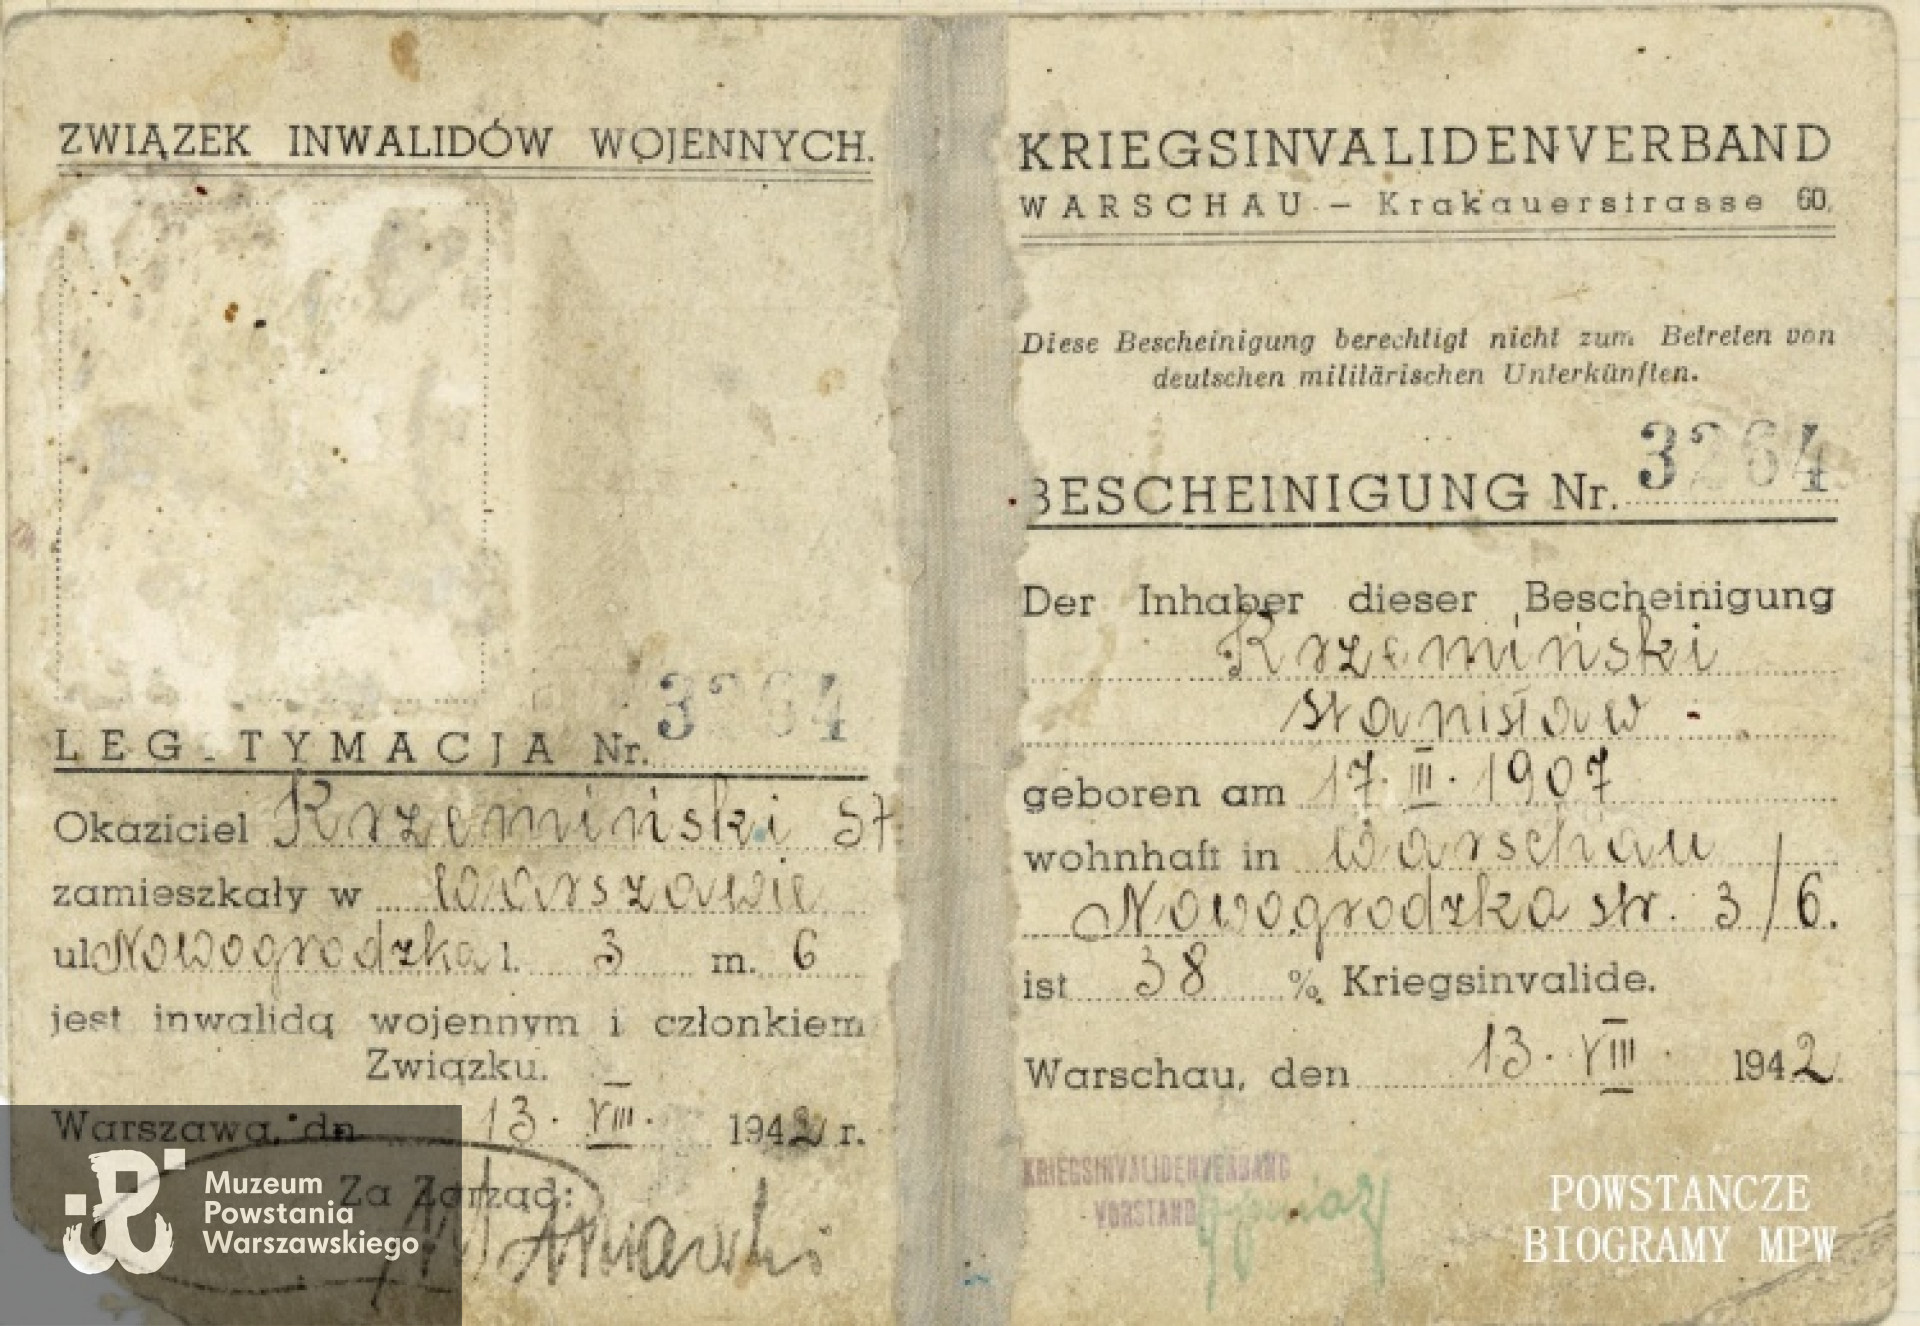 ZWIĄZEK INWALIDÓW WOJENNYCH.
3264
LEG TYMACJA Nr.
Okaziciel Krzemiński St
zamieszkały w Warszawie
ul Nowogrodzka l. 3 m. 6
jest inwalidą wojennym i członkiem
Związku.
Warszawa, dn 13. VIII. 1942 r.
Za Zarząd:
Muzeum
Powstania
Warszawskiego
KRIEGSINVALIDENVERBAND
WARSCHAU – Krakauerstrasse 60.
Diese Bescheinigung berechtigt nicht zum Betreten von
deutschen militärischen Unterkünften.
BESCHEINIGUNG Nr. 3264
Der Inhaber dieser Bescheinigung
Krzemiński
Stanisław -
geboren am 17. III. 1907
wohnhaft in Warschau
Nowogrodzka str. 3/6.
ist 38 % Kriegsinvalide.
Warschau, den 13. VIII. 1942
KRIEGSINVALIDENVERBAND
VORSTAND
POWSTAŃCZE
BIOGRAMY MPW